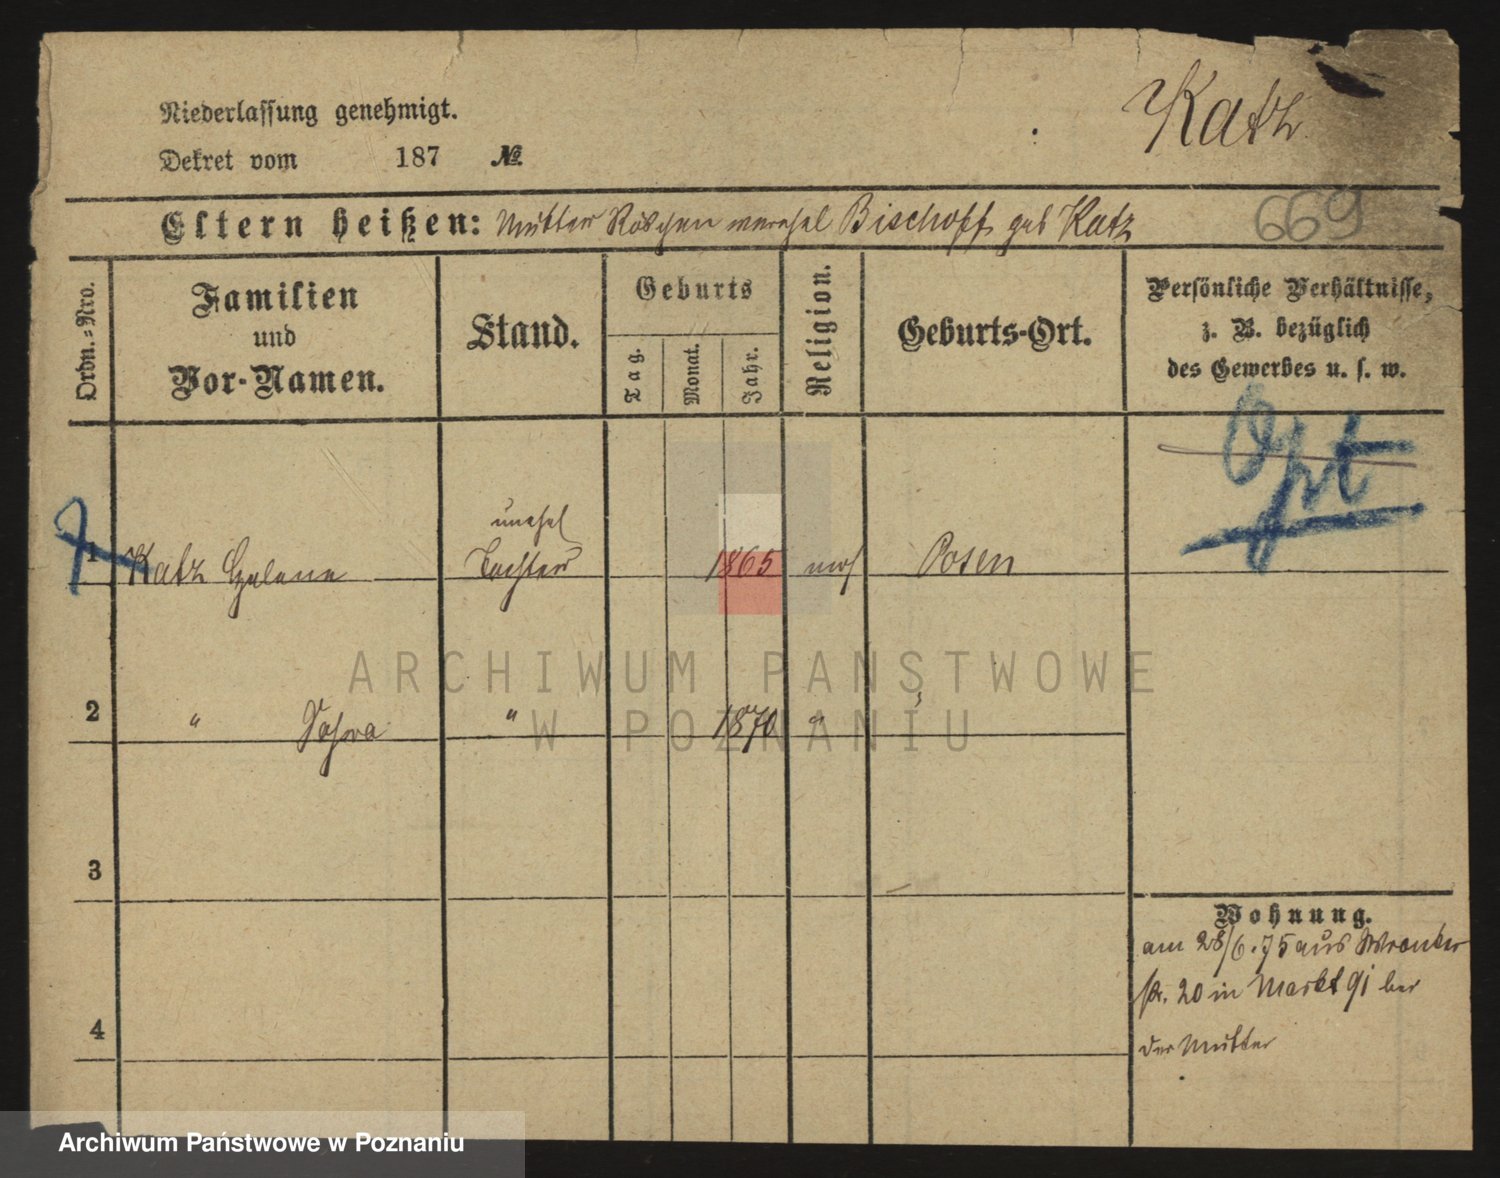 Katz
Niederlassung genehmigt.
Dekret vom 187 №
Eltern heißen: Mutter Röschen verehel Bischoff geb Katz
669
Ordn.-Nro.
Familien
und
Vor-Namen.
Stand.
Geburts
Tag.
Monat.
Jahr.
Religion.
Geburts-Ort.
Persönliche Verhältnisse,
z. B. bezüglich
des Gewerbes u. s. w.
Opt
unehel
1 Katz Helene Tochter 1865 mos Posen
2 " " 1870 "
3
4
Wohnung.
am 28/6.75 aus Wronker
str. 20 in Markt 91 bei
der Mutter
ARCHIWUM PAŃSTWOWE
W POZNANIU
Archiwum Państwowe w Poznaniu